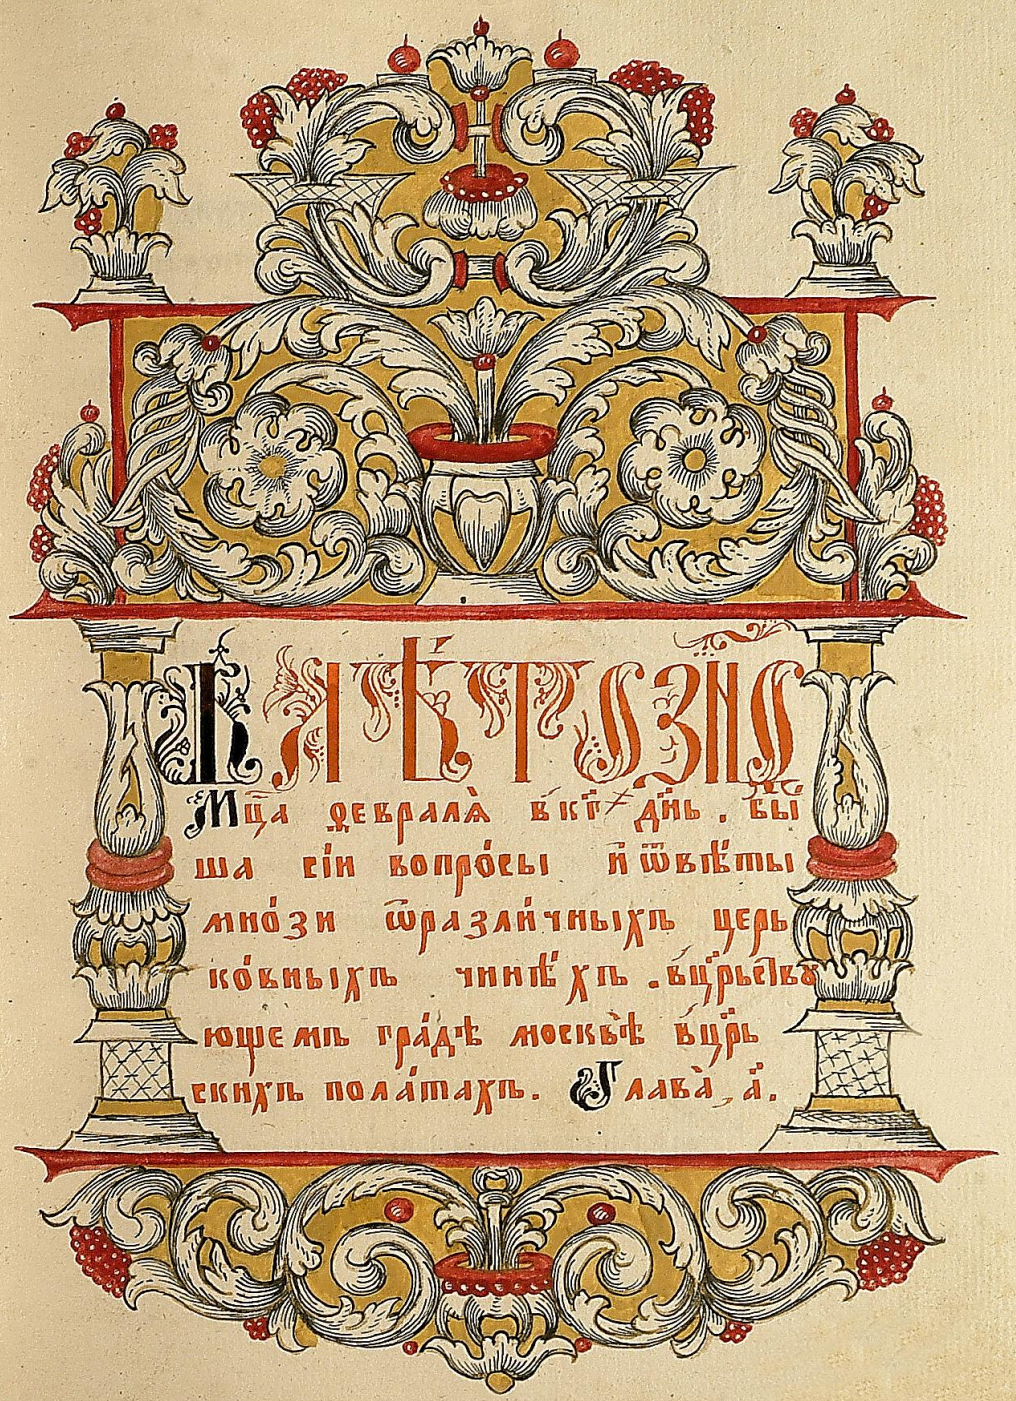 В лѣто ҂зн҃ѳ
Мц҃а февралѧ̀ в̾ кг҃ дн҃ь . бы́
ша сі́и вопро́сы и҆ ѿвѣ́ты
мно́зи ѿ разли́чныхъ церь
ко́вныхъ чинѣ́хъ . в̾ цр҃ьствꙋ
ющемъ гра́дѣ москвѣ̀ в̾ цр҃ь
скихъ пола́тахъ. Глава̀ , а҃.